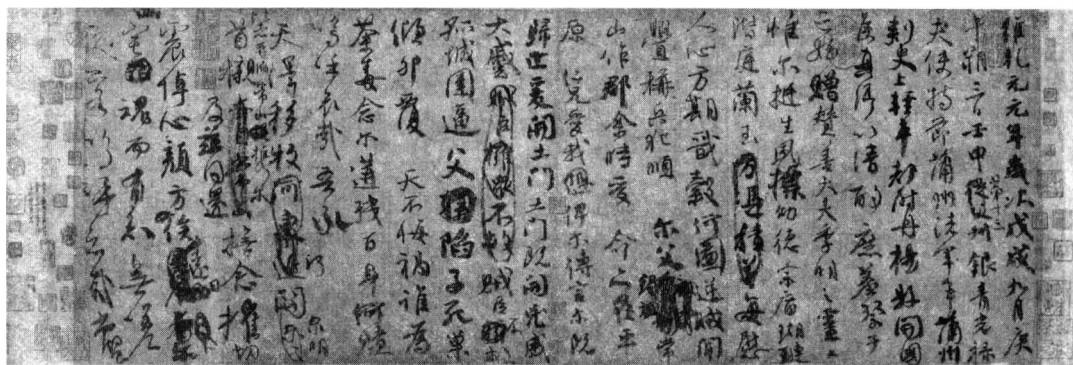 維乾元元年歲次戊戌九月庚
午朔三日壬申第十三叔銀青光祿
夫使持節蒲州諸軍事蒲州
刺史上輕車都尉丹楊縣開國
侯真卿以清酌庶羞祭于
亡姪贈贊善大夫季明之靈曰
惟爾挺生夙標幼德宗廟瑚璉
階庭蘭玉每慰
人心方期戩穀何圖逆賊閒
釁稱兵犯順爾父竭誠常
山作郡余時受命亦在平
原仁兄愛我俾爾傳言爾既
歸止爰開土門土門既開凶威
大蹙賊臣不救
孤城圍逼父陷子死巢
傾卵覆天不悔禍誰為
荼毒念爾遘殘百身何贖
嗚呼哀哉吾承
天澤移牧河關泉明
比者再陷常山攜爾
首櫬及茲同還撫念摧切
震悼心顏方俟遠日卜
爾幽宅魂而有知無嗟
久客嗚呼哀哉尚饗